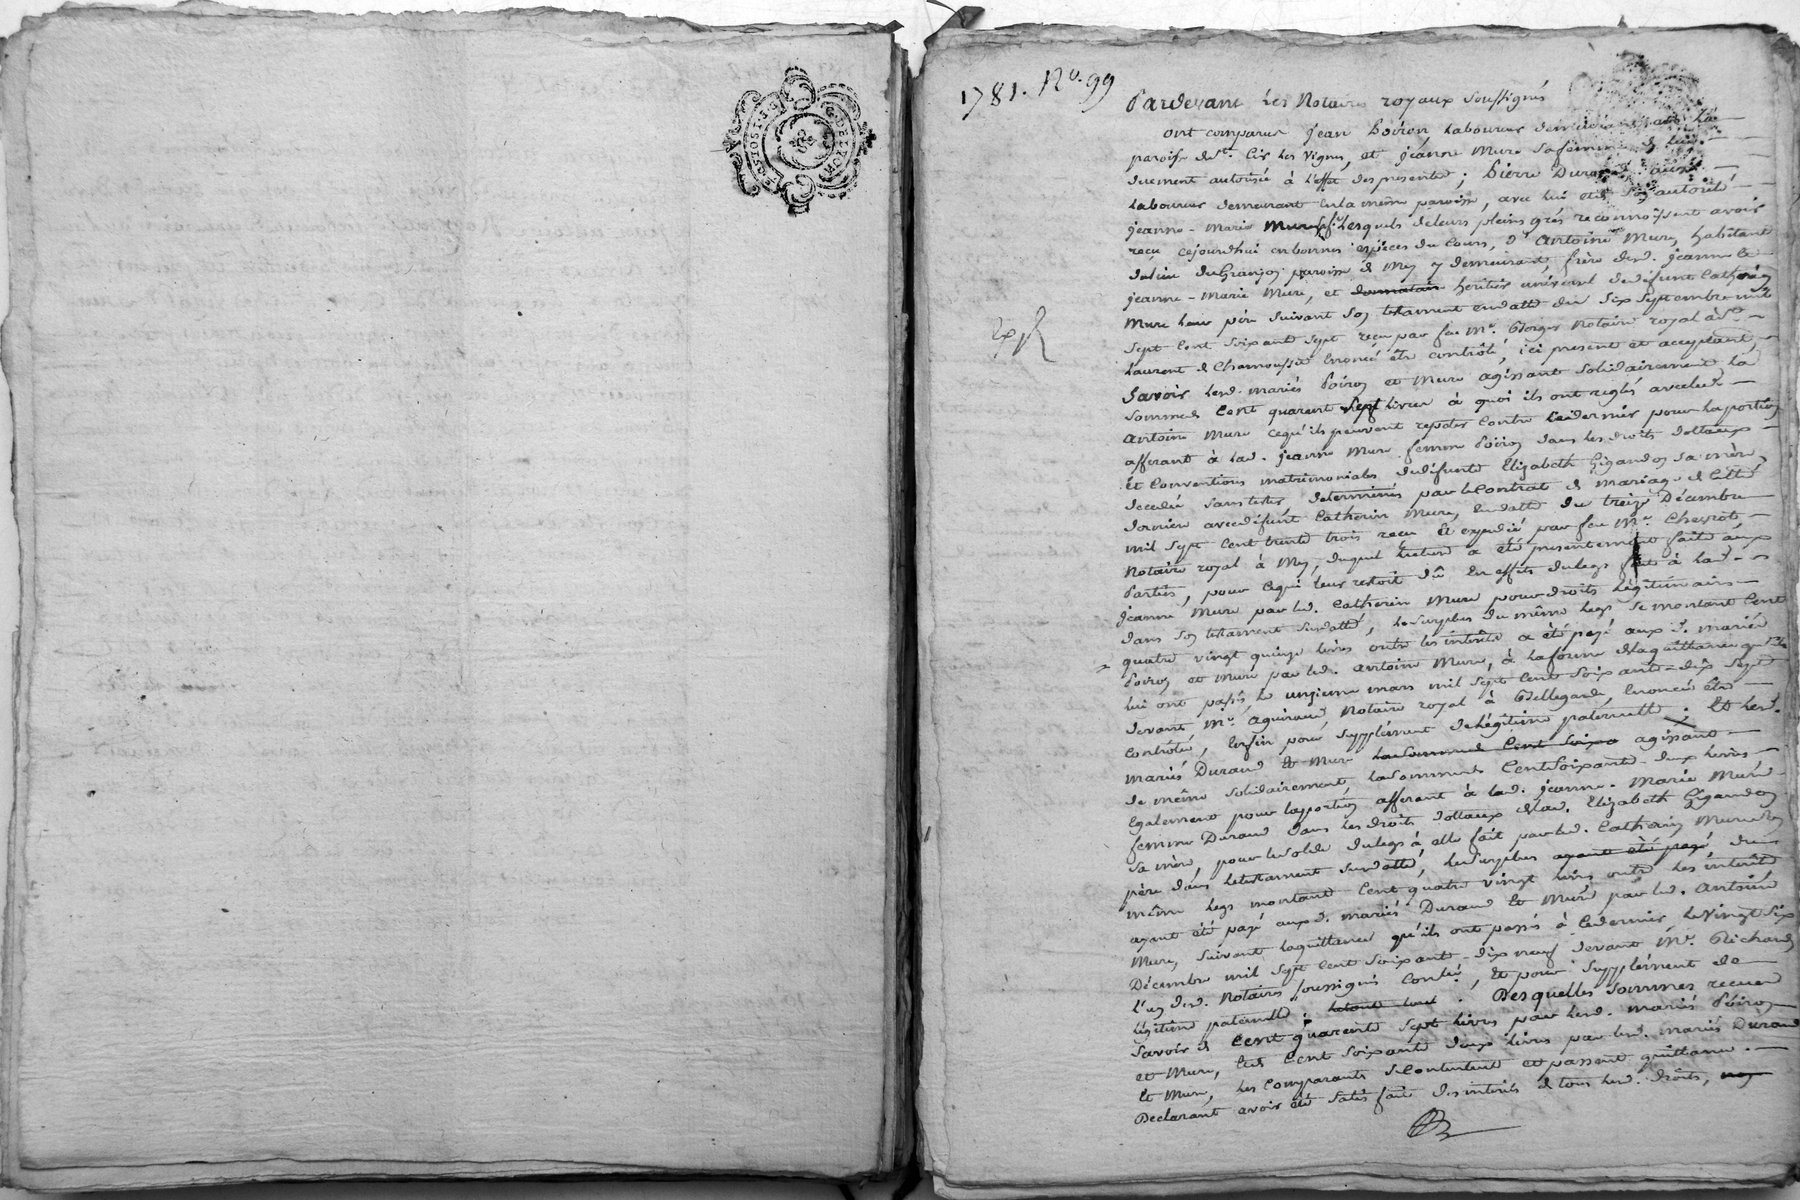 G. DE LYON
1781. No. 99
Pardevant Les Notaires royaux soussignés
ont comparus Jean Poiron Laboureur
paroisse de St. Cir Les Vignes, et jeanne Mure sa femme de lui
duement autorisée à l'effet des presentes ; Pierre Durand aussi
Laboureur demeurant en la même paroisse, avec lui et de son autorité
jeanne-Marie Mure, Lesquels de leurs pleins grés reconnoissent avoir
recu cejourdhui en bonnes espèces du Cours, d'Antoine Mure, habitant
du lieu du paroisse de Mey y demeurant, frère desd. jeanne et
jeanne-Marie Mure, et donnataire heritier universel de defunt Catherin
Mure leur père suivant son testament en datte du six septembre mil
sept Cent soixante sept recu par feu Me. Notaire royal à St.
Laurent de Chamousset énoncé être controlé, ici present et acceptant,
Savoir Lesd. mariés Poiron et Mure agissant solidairement la
somme de Cent quarente sept livres à quoi ils ont reglés avec led.
Antoine Mure ce qu'ils peuvent repeter contre ce dernier pour la portion
afferant à lad. jeanne Mure femme Poiron dans les droits dottaux
et Conventions matrimoniales de defunte Elizabeth Gigandon sa mère,
decedée sans tester determinés par le Contrat de mariage de cette
dernière avec défunt Catherin Mure, en datte du treize Décembre
mil sept Cent trente trois recu et expedié par feu Me.
Notaire royal à Mey, duquel lecture a été presentement faite aux
Parties, pour ce qui leur restoit dû en effets du legs fait à lad.
jeanne Mure par led. Catherin Mure pour droits Légitimaires
dans son testament susdatté, le surplus du même legs se montant Cent
quatre vingt quinze livres outre les intérêts a été payé aux d. mariés
Poiron et Mure par led. Antoine Mure, à la forme de la quittance qu'ils
lui ont passés le unzieme mars mil sept Cent soixante-dix sept
devant Me. Notaire royal à Bellegarde, énoncée être
Controlée, enfin pour supplement de légitime paternelle ; Et Lesd.
mariés Durand et Mure la somme de Cent soixa agissant
de même solidairement, la somme de Cent soixante-deux livres
Egalement pour la portion afferant à lad. jeanne-Marie Mure
femme Durand dans les droits dottaux de lad. Elizabeth Gigandon
sa mère, pour le solde du legs à elle fait par led. Catherin Mure son
père dans le testament susdatté, le surplus ayant été payé du
même legs montant Cent quatre vingt livres outre les intérêts
ayant été payé aux d. mariés Durand et Mure par led. Antoine
Mure, suivant la quittance qu'ils ont passés à ce dernier le vingt six
Décembre mil sept Cent soixante-dix neuf devant Me. Richard
l'un desd. Notaires soussignés Controlé, Et pour supplément de
légitime paternelle ; Desquelles sommes recues
Savoir de Cent quarente sept livres par Lesd. mariés Poiron
et Mure, et de Cent soixante deux livres par Lesd. mariés Durand
et Mure, les comparants se Contentent et passent quittance.
Declarant avoir été satisfait des intérêts de tous lesd. droits,